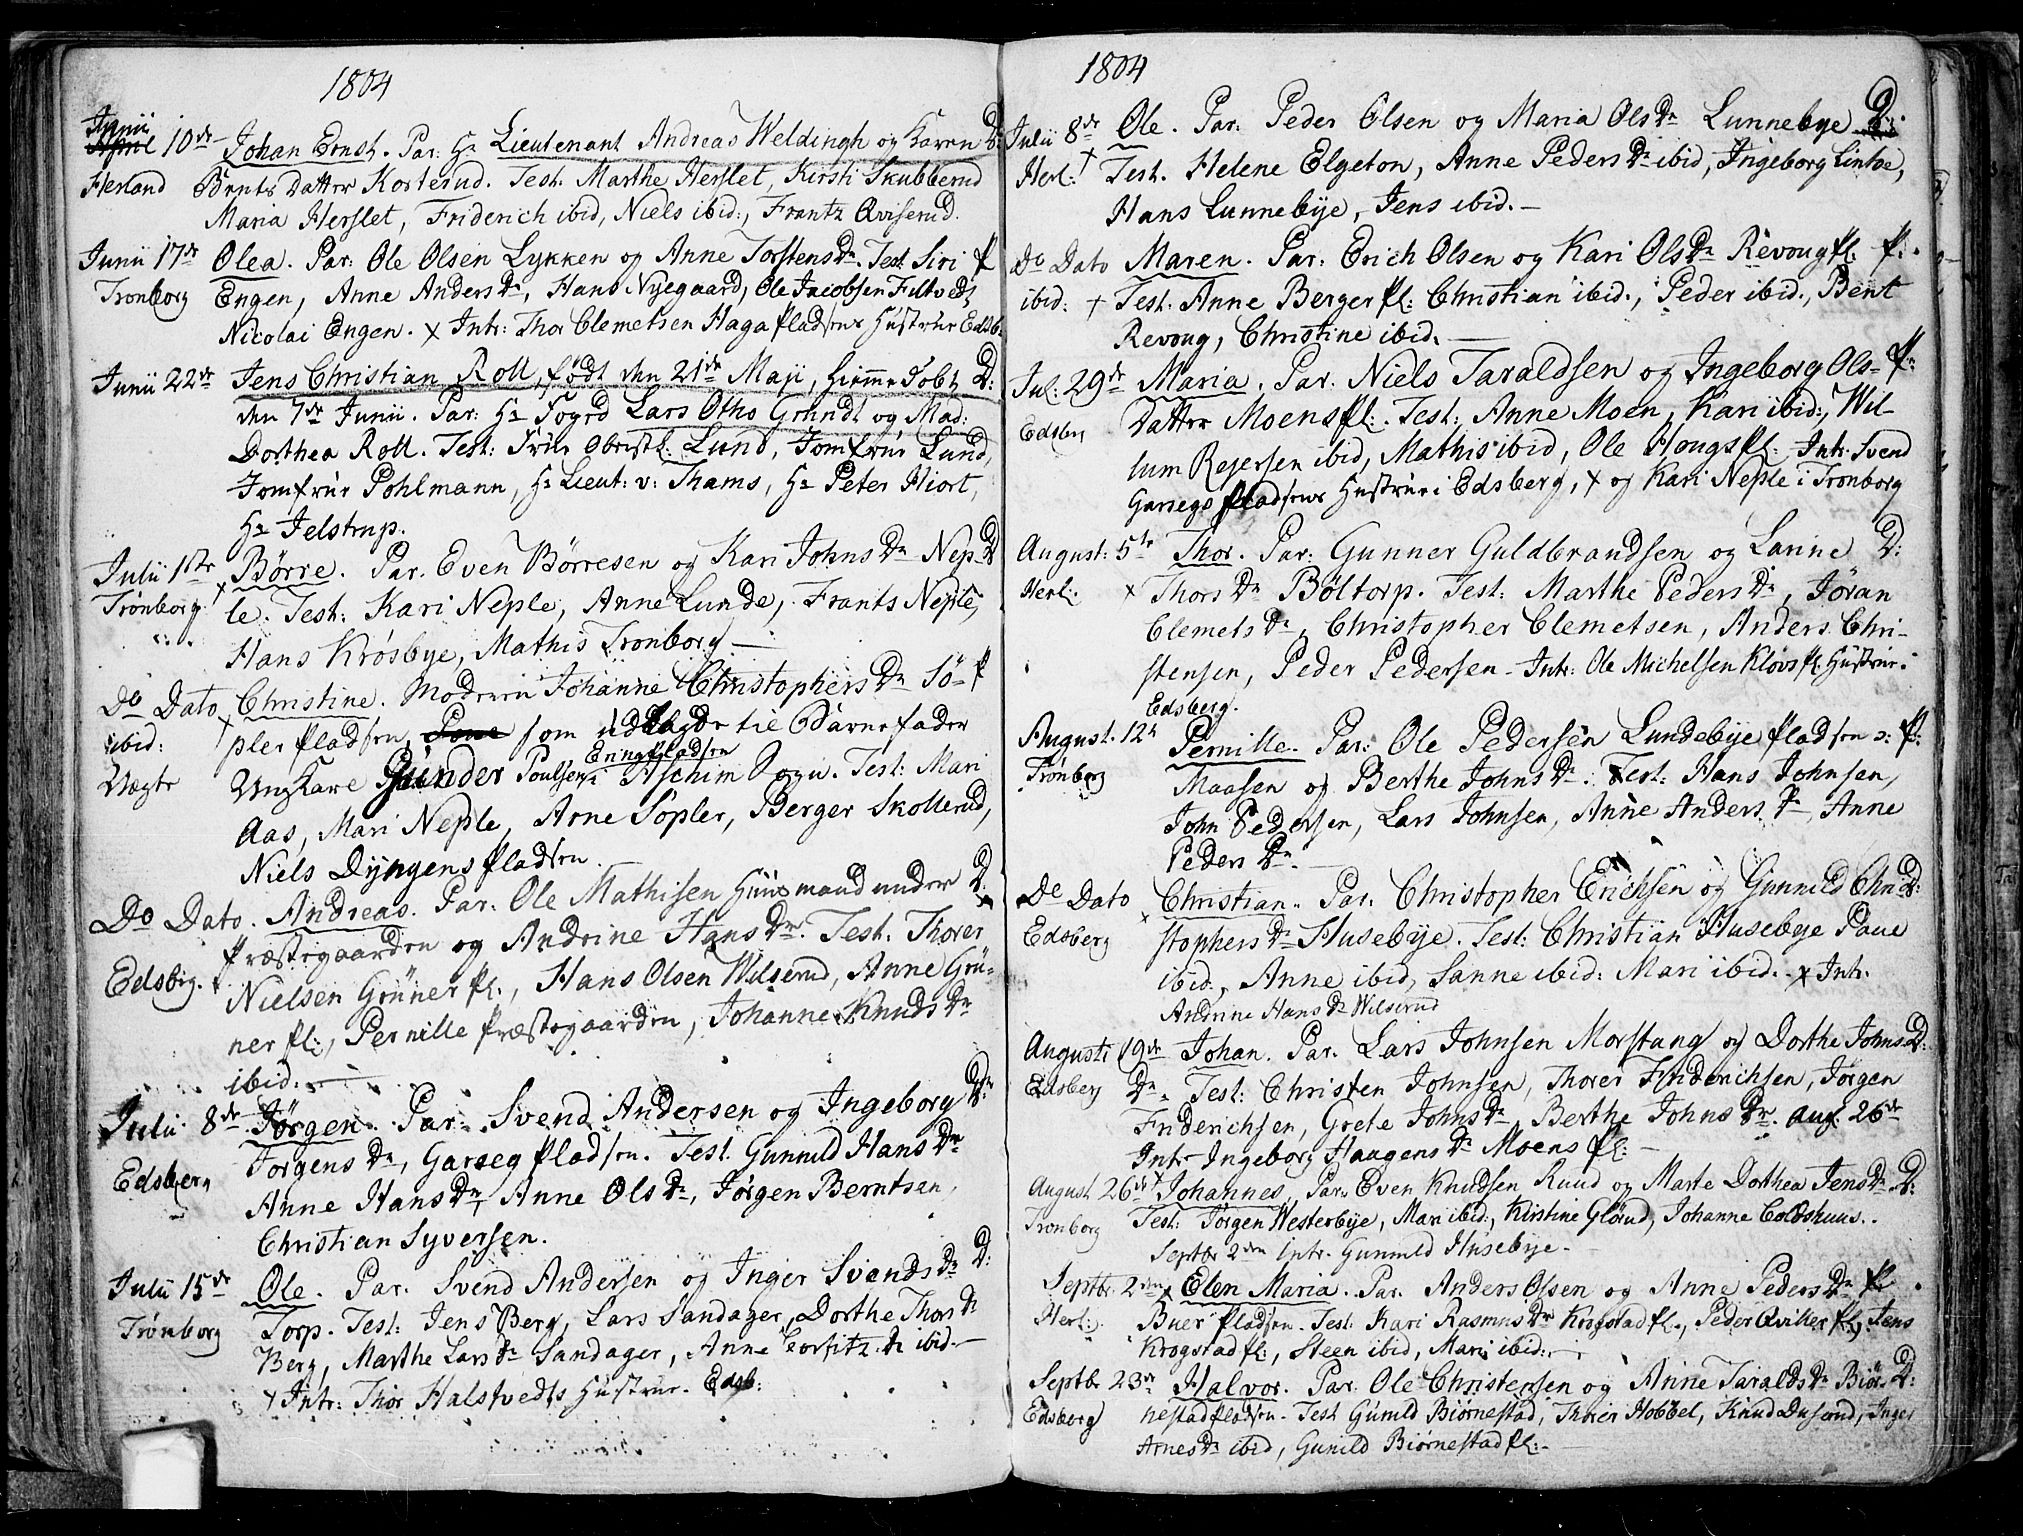 1804
Junii
April 10de Johan Ernst. Par: Hr Lieutenant Andreas Weldingh og Karen D:
Herland Bernts Datter Korterud. Test. Marthe Herslet, Kirsti Skubberud
Maria Herslet, Friderich ibid, Niels ibid:, Frantz Qviserud.
Junii 17de Olea. Par: Ole Olsen Lykken og Anne Torstensdr. Test: Siri P
Tronborg Engen, Anne Andersdr, Hans Nyegaard, Ole Jacobsen Filtvedt
Nicolai Engen. x Intr: Thor Clemetsen Haga pladsens Hustrue Edsb.
Junii 22de Jens Christian Roll, født den 21de Maji, hiemmedøbt D:
den 7de Junii. Par: Hr Foged Lars Otho Grundt og Mad:
Dorthea Roll. Test: Frue Obristl: Lund, Jomfrue Lund,
Jomfrue Pohlmann, Hr Lieut: v: Thams, Hr Peter Hiort,
Hr Jelstrup.
Julii 1ste Børre. Par. Even Børresen og Kari Johnsdr Nep- D
Trønborg x le. Test: Kari Neple, Anne Lunde, Frants Neple,
Hans Krosbye, Mathis Tronborg.—
Do Dato Christine. Moderen Johanne Christophersdr Sö- P
ibid: x pler pladsen, som udlagde til Barnefader
Uægte Ungkarl Gunder Poulsen i Eringpladsen Aschim Sogn. Test: Mari
Aas, Mari Neple, Arne Sopler, Berger Skollerud,
Niels Dyngens pladsen.
Do Dato. Andreas. Par: Ole Mathisen Huusmand under D:
Præstegaarden og Andrine Hansdr. Test. Thorer
Edsbrg. Nielsen Gruner pl:, Hans Olsen Wilserud, Anne Grü-
ner pl:, Pernille Præstegaarden, Johanne Knudsdr
ibid:.—
Julii 8de Jørgen. Par. Svend Andersen og Ingeborg D:
Jorgensdr, Garseg pladsen. Test. Gunnild Hansdr
Edsberg Anne Hansdr, Anne Olsdr, Jørgen Berntsen,
Christian Syversen.
Julii 15de Ole. Par. Svend Andersen og Inger Svendsdr D:
Trønborg Torp. Test: Jens Berg, Lars Sandager, Dorthe Thorsdr
Berg, Marthe Larsdr Sandager, Anne Corfitzdr ibid.—
x Intr: Thor Halstvedts Hustrue. Edsb:
1804
Julii 8de Ole. Par: Peder Olsen og Maria Olsdr Lunnebye D:
Herl: x Test. Helene Elgeton, Anne Pedersdr ibid, Ingeborg Lintoe,
Hans Lunnebye, Jens ibid.—
Do Dato Maren. Par: Erich Olsen og Kari Olsdr Revougpl: P:
ibid: x Test: Anne Berger pl: Christian ibid., Peder ibid., Bent
Revoug, Christine ibid.—
Jul: 29de Maria. Par. Niels Taraldsen og Ingeborg Ols- P:
Edsby Datter Moenspl:. Test: Anne Moen, Kari ibid:, Wil-
lum Rejersen ibid, Mathis ibid, Ole Hougspl: Intr. Svend
Garsegs pladsens Hustrue i Edsberg, x og Kari Neple i Tronborg
August: 5te Thor. Par: Gunner Guldbrandsen og Larine D:
Herl: x Thorsdr Böltorp. Test: Marthe Pedersdr, Jøran
Clemetsdr, Christopher Clemetsen, Anders Chri-
stensen, Peder Pedersen. Intr: Ole Michelsen Kløvspl: Hustrue.
Edsberg.
August. 12te Pernille. Par: Ole Pedersen Lundebye pladsen P:
Trönborg Maasen og Berthe Johnsdr. Test: Hans Johnsen,
John Pedersen, Lars Johnsen, Anne Andersdr, Anne
Pedersdr.—
Do Dato Christian. Par. Christopher Erichsen og Gunnild Chri- D:
Edsberg x stophersdr Husebye. Test: Christian Husebye Paue
ibid., Anne ibid, Sanne ibid: Mari ibid. x Intr.
Andrine Hansdr Wilserud
Augusti 19de Johan. Par. Lars Johnsen Morstang og Dorthe Johns- D:
Edsberg dr. Test: Christen Johnsen, Thorer Friderichsen, Jørgen
Friderichsen, Grete Johnsdr, Berthe Johnsdr. Aug. 26de
Intr Ingeborg Haagensdr Moens pl:—
August 26de x Johannes. Par. Even Knudsen Ruud og Marte Dorthea Jensdr. D:
Tronborg Test: Jörgen Westerbye, Mari ibid:, Kirstine Glørud, Johanne Coldshuus.
Septbr 2den Intr. Gunnild Husebye.
Septbr. 2den x Elen Maria. Par. Anders Olsen og Anne Pedersdr P
Herl: Buer pladsen. Test: Kari Rasmusdr Krogstad pl., Peder Qviller pl, Jens
Krogstad pl:, Steen ibid, Mari ibid:—
Septbr 23de Halvor. Par. Ole Christensen og Anne Taraldsdr Biör- D:
Edsberg nestad pladsen. Test Gunild Biørnestad, Thorer Hobbel, Knud Duserud, Inger
Arnesdr ibid, Gunild Biørnestad pl:—